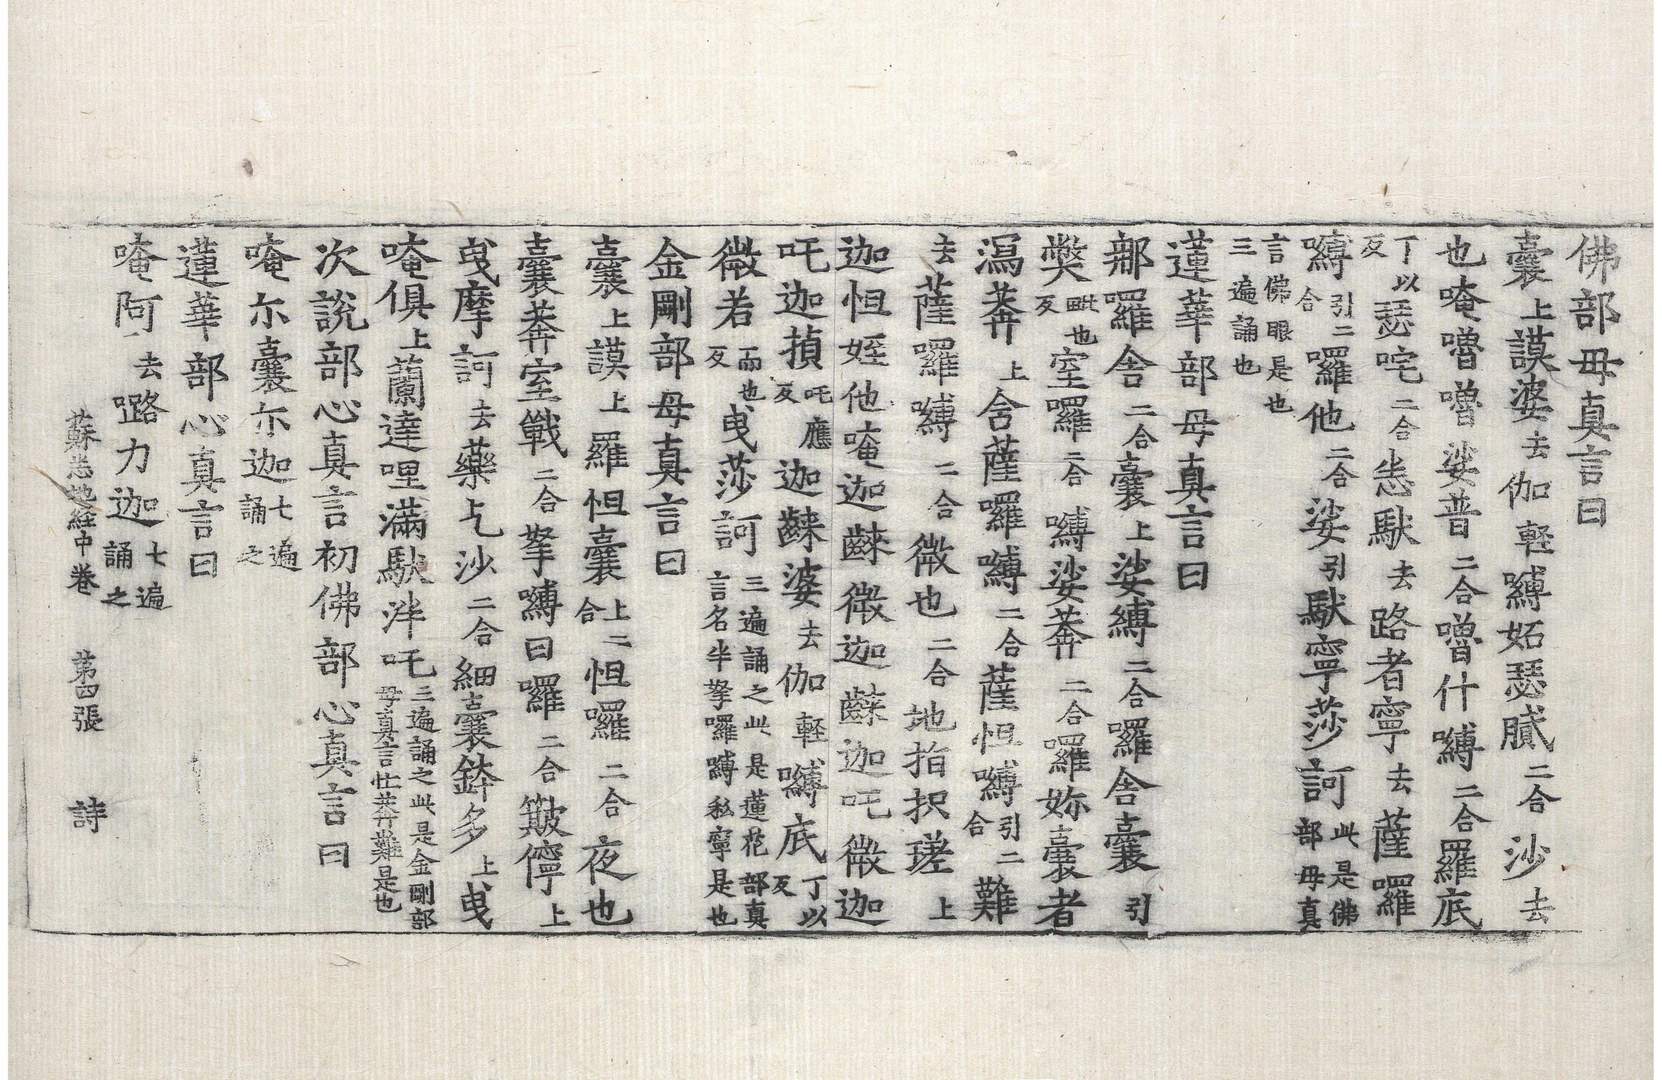 佛部母真言曰
囊上謨婆去伽輕嚩妬瑟膩二合沙去
也唵嚕嚕娑普二合嚕什嚩二合羅底
丁以反瑟咤二合悉馱去路者寧去薩囉
嚩引二合囉他二合娑引馱寧莎訶此是佛部母真
言佛眼是也三遍誦也
蓮華部母真言曰
那羅舍二合囊上娑縛二合囉舍囊引
獘毗也反室囉二合嚩娑莾二合囉妳囊者
瀉莾上舍薩囉嚩二合薩怛嚩引二合難
去薩囉嚩二合微也二合地指抧瑳上
迦怛姪他唵迦齼微迦齼迦吒微迦
吒迦㨋吒應反迦齼婆去伽輕嚩底丁以反
微若而也反曳莎訶三遍誦之此是蓮花部真言名半拏囉嚩私寧是也
金剛部母真言曰
囊上謨上羅怛囊上二合怛囉二合夜也
囊莾室戰二合拏嚩曰囉二合簸儜上
曳摩訶去藥乞沙二合細囊鉢多上曳
唵俱上蘭達哩滿馱泮吒三遍誦之此是金剛部母真言忙莾難是也
次說部心真言初佛部心真言曰
唵尒囊尒迦七遍誦之
蓮華部心真言曰
唵阿去㘕力迦七遍誦之
蘇悉地経中卷　第四張　詩